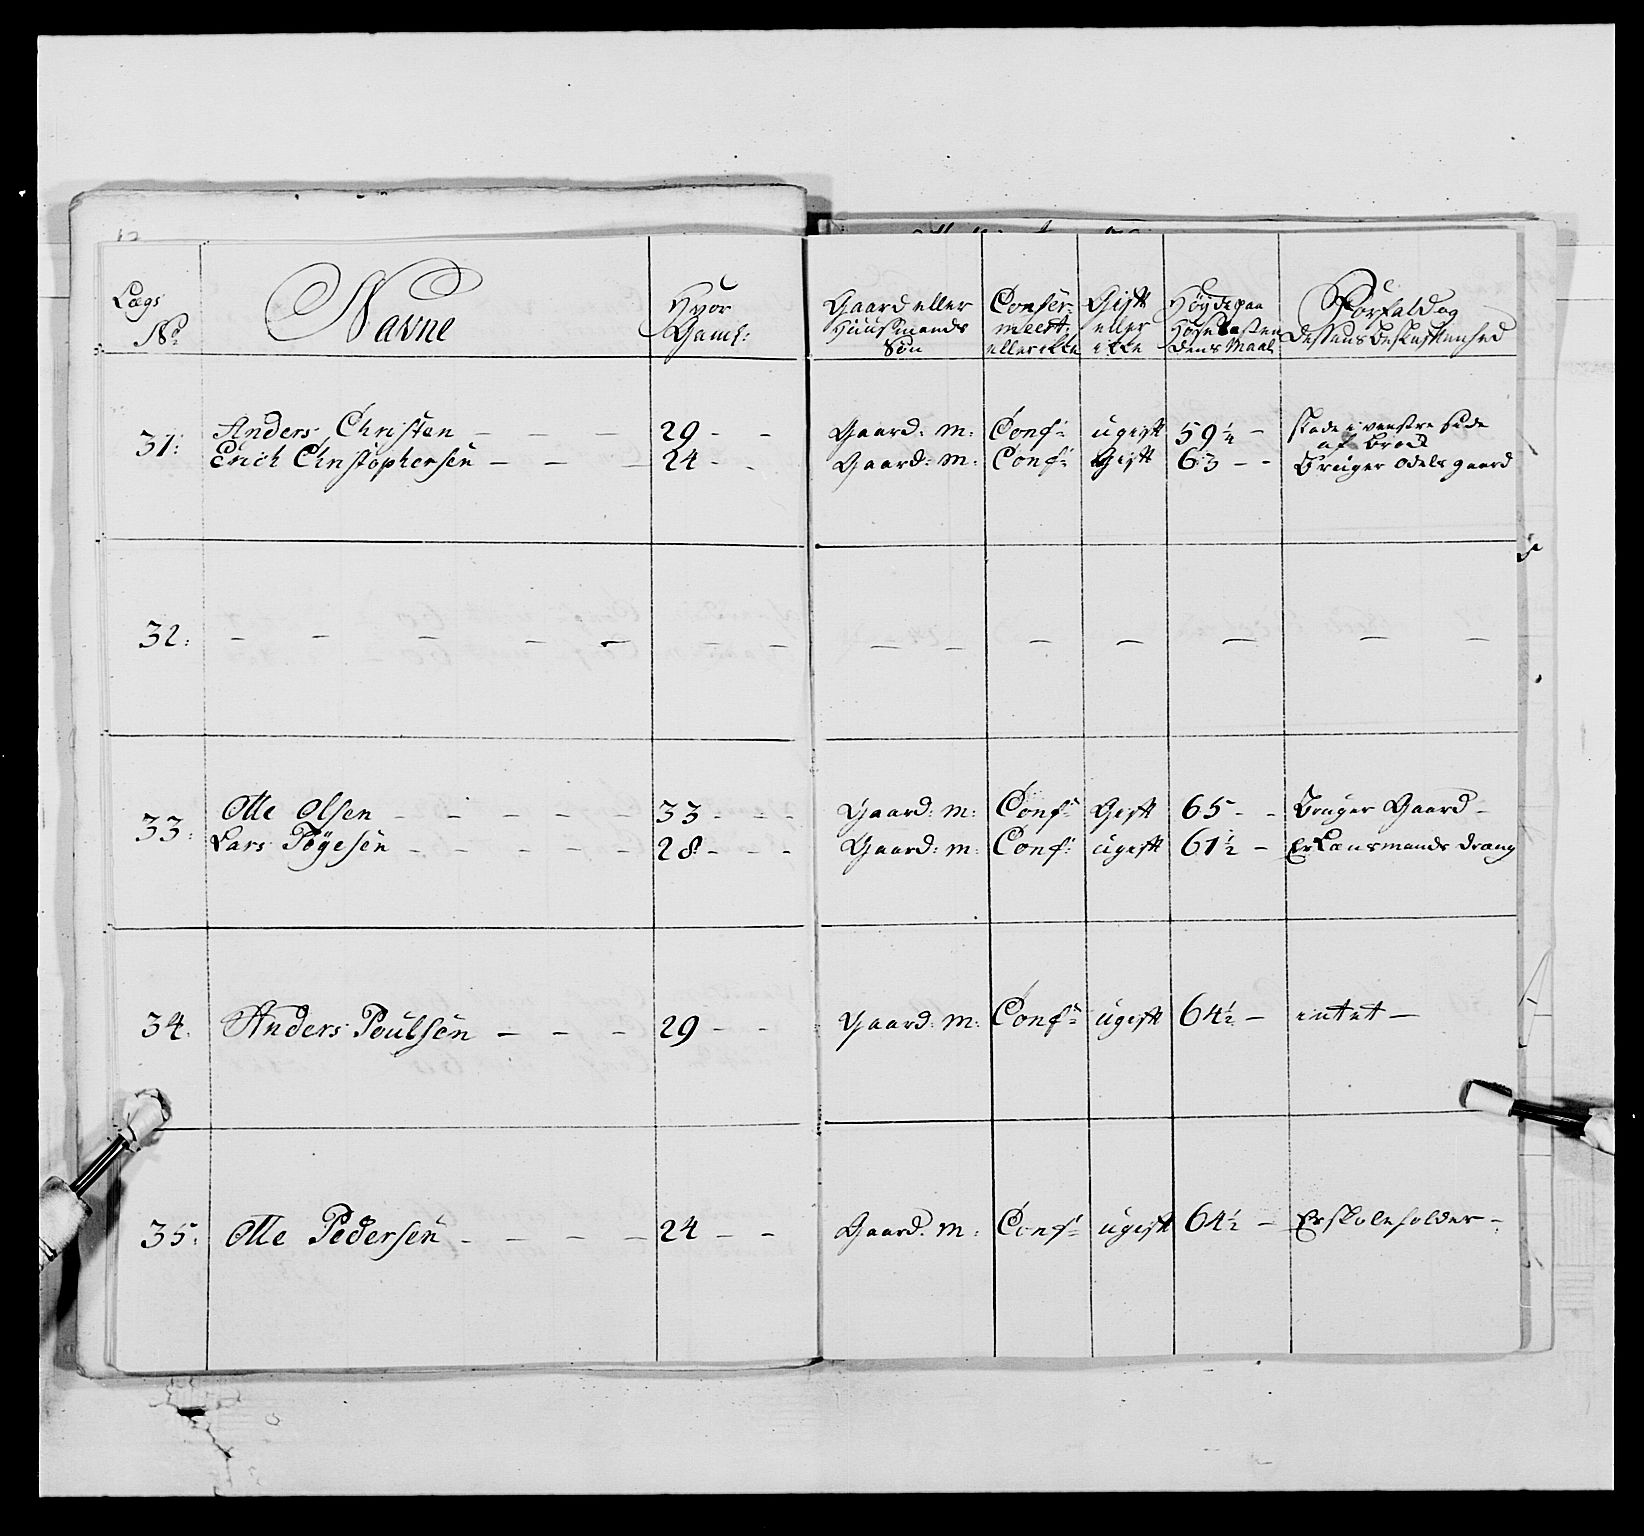 Lægs No
Navne
Hvor Gaml:
Gaard eller Huusmands Søn
Confer: meert: eller ikke
Gift eller ikke
Høyde paa Hosesokken dens Maal
Forfald og dessens beskaffenhed
31: Anders Christen — — — 29 - - Gaard: M: Conf: ugift 59 1/4 - skade i venstre side af brock
Erich Christophersen — — — 24 - - Gaard: M: Conf: Gift 63 - - bruger odels gaard
32: — — — — — — — — — — — — — —
33: Olle Olsen - - - - - 33 - - - Gaard: M: Conf: Gift 65 - - bruger Gaard -
Lars Tøgesen - - - - - 28 - - - Gaard: M: Conf: ugift 61 1/2 - Er Lænsmands dræng
34: Anders Poulsen — — — 29 - - Gaard: M: Conf: ugift 64 1/2 - intet —
35: Olle Pedersen - - - - 24 - - Gaard: M: Conf: ugift 64 1/2 - Er skoleholder -